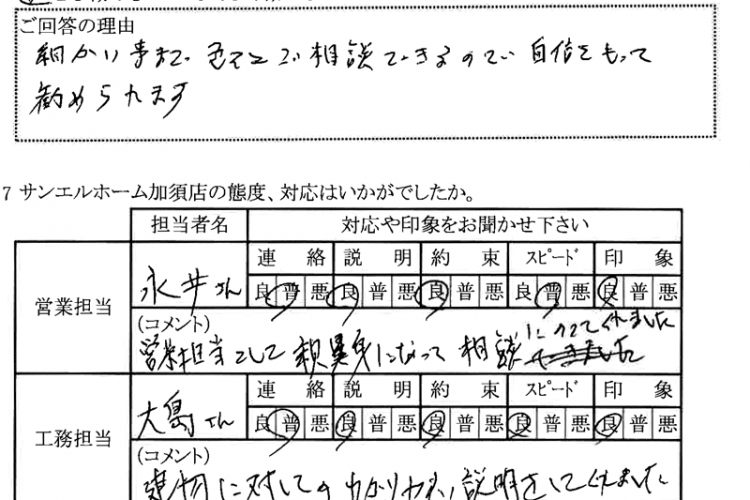 ご回答の理由
細かい事まで 色々と 相談できるので 自信をもって
勧められます
7 サンエルホーム加須店の態度、対応はいかがでしたか。
担当者名 対応や印象をお聞かせ下さい
連絡 説明 約束 スピード 印象
営業担当 永井さん 良 普 悪 良 普 悪 良 普 悪 良 普 悪 良 普 悪
(コメント)
営業担当として 親身になって 相談にのってくれました
連絡 説明 約束 スピード 印象
工務担当 大島さん 良 普 悪 良 普 悪 良 普 悪 良 普 悪 良 普 悪
(コメント)
建物に対しての わかりやすい 説明をしてくれました